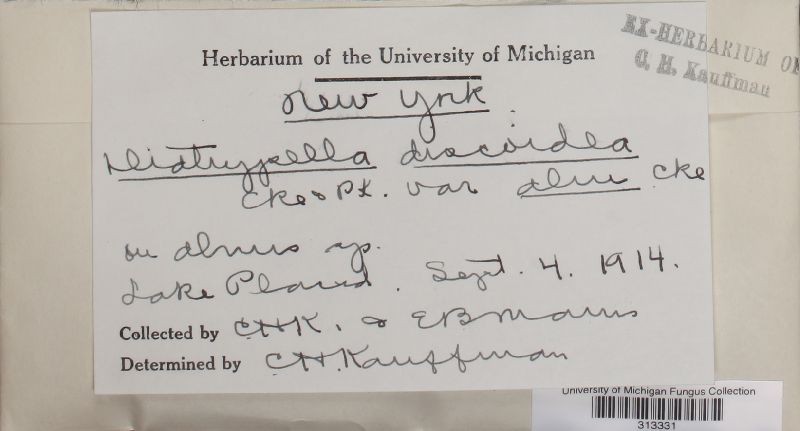 Herbarium of the University of Michigan
EX-HERBARIUM OF
C. H. Kauffman
New York
Diatrypella discoidea
Cke & Pk. var alni Cke
on Alnus sp.
Lake Placid. Sept. 4. 1914.
Collected by CHK. & EBMains
Determined by CH.Kauffman
University of Michigan Fungus Collection
313331